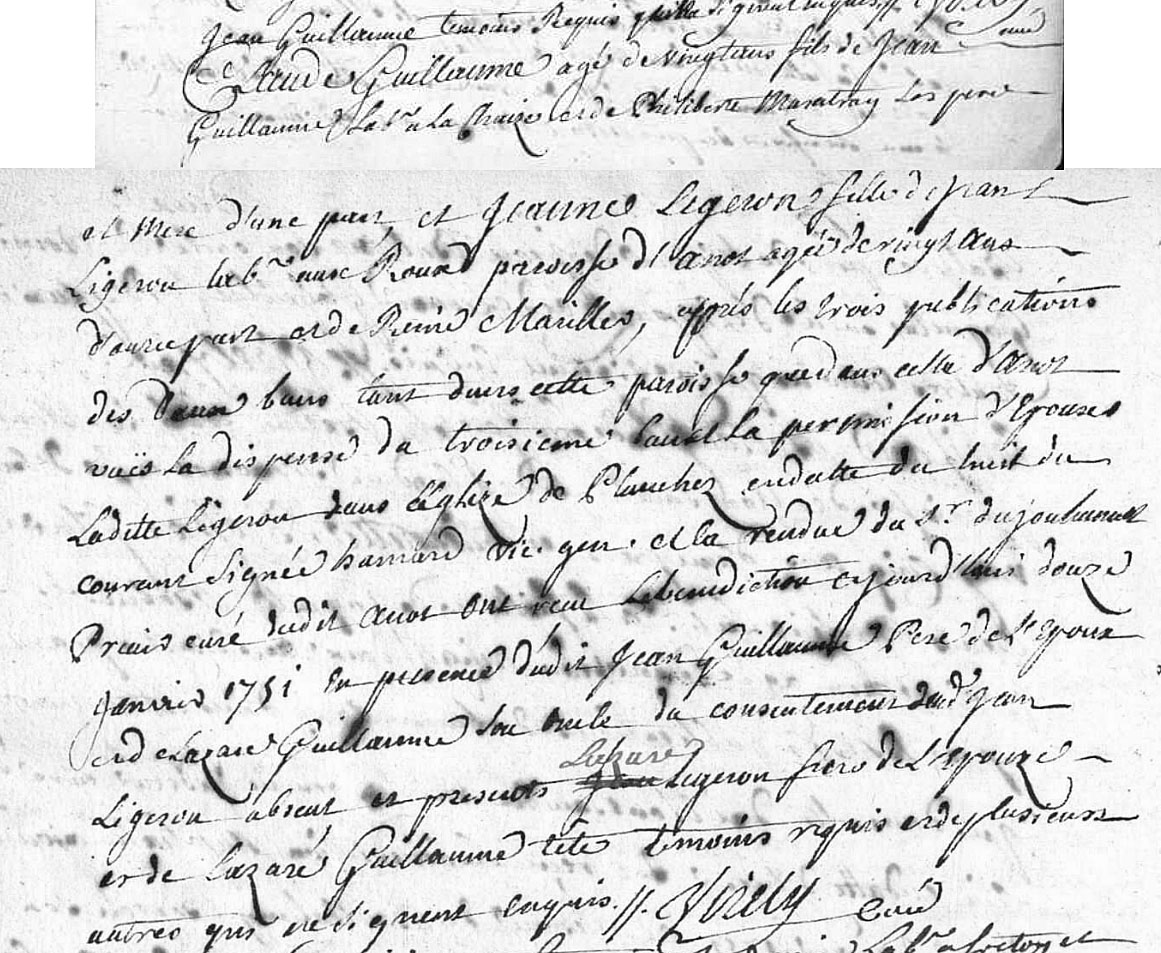 Jean Guillaume temoins Requis qui ne signent enquis //.
Claude Guillaume agé de vingt ans fils de Jean
Guillaume Labr a la Chaize et de Philiberte Maratray Les pere
et Mere d'une part, et Jeanne Ligeron fille de Jean
Ligeron labr aux Roux paroisse d'anot agée de vingt ans
d'autre part et de Reine Marilles, après les trois publications
des bans tant dans cette paroisse que dans celle d'Anot
vües La dispense du troisieme banc et La permission d'Epouser
Laditte Ligeron dans l'Eglize de Planchez endatte du huit du
courant signée hamard vic. gen. et la rendue du Sr.
Previs curé dudit Anot ont recu La benediction cejourd'huis douze
Janvier 1751 En presence dudit Jean Guillaume Pere de L'Epoux
et de Lazare Guillaume son oncle du consentement dud Jean
Ligeron absent et presents Lazare Ligeron frere de L'Epouze
et de Lazare Guillaume tete temoins requis et de plusieurs
autres qui ne signent enquis. //. Virely Curé